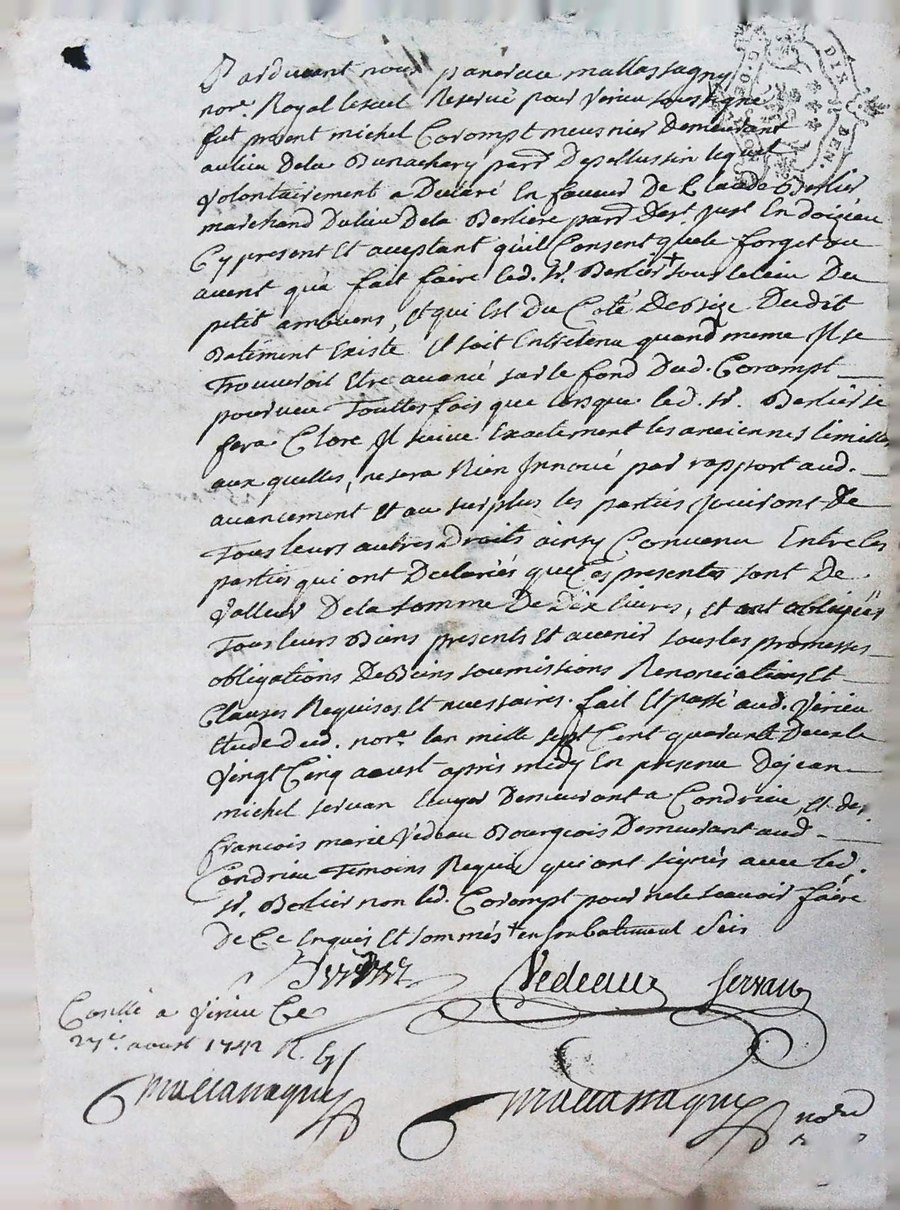 Pardevant nous pancrace mallassagny
nore. Royal lesuel Reservé pour Verieu soussigné
fut present michel Corompt meusnier Demeurant
au lieu Dela Bunachery parr. Depellussin lequel
volontairement a Declaré En faveur De Claude Berlier
marchand Dulieu Dela Berliere parr. Dest. just En doizieu
Cy present Et acceptant qu'il Consent que le forget ou
avent qu'a fait faire led. sr. Berlier + sous le lieu Du
petit ambuens, Et qui Est Du Coté De bize Dudit
Batiment Existe Et soit Entretenu quand meme Il se
Trouveroit Etre avancé sur le fond Dud. Corompt
pourveu Touttesfois que lorsque led. sr. Berlier se
fera Clore Il suive Exactement les anciennes limittes
aux quelles, ne sera Rien Innové par rapport aud.
avancement Et au surplus les parties jouiront De
Tous leurs autres Droits ainsy Convenu Entre les
parties qui ont Declarés que Ces presentes sont De
Valleur De la somme De Dix livres, Et ont obligés
Tous leurs Biens presents Et avenir sous les promesses
obligations De Biens soumissions Renonciations Et
Clauses Requises Et necessaires. fait Et passé aud. Verieu
Etude dud. nore. lan mille sept Cent quarante Deux le
Vingt Cinq aoust après midy En presence De jean
michel servan Ecuyer Demeurant a Condrieu, Et de sr.
francois marie Vedeau Bourgeois Demeurant aud.
Condrieu Temoins Requis qui ont signés avec led.
sr. Berlier non led. Corompt pour ne le scavoir faire
De Ce Enquis Et sommés + en son batiment
Vedeau Servan
Conllé a Verieu Le
27e. aoust 1742 R.
Mallassagny
Mallassagny nore